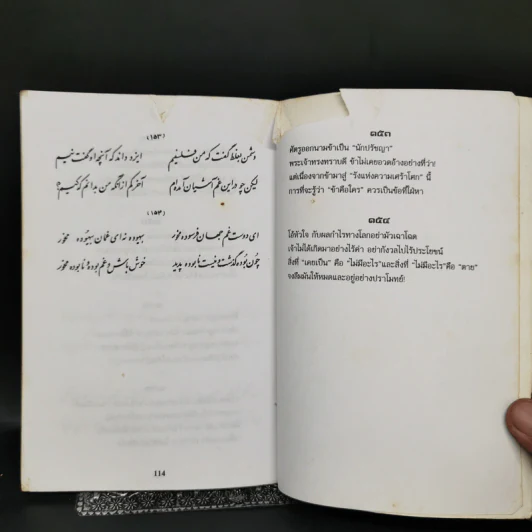 (۱۵۳)
دشمن بغلط گفت که من فلسفیم ایزد داند که آنچه او گفت نیم
لیکن چو در این غم آشیان آمده‌ام آخر کم از آنکه من بدانم که کیم؟
(۱۵۴)
ای دوست غم جهان فرسوده مخور بیهوده نه‌ای غمان بیهوده مخور
چون بوده گذشت و نیست نابوده پدید خوش باش و غم بوده و نابوده مخور
114
๑๕๓
ศัตรูออกนามข้าเป็น "นักปรัชญา"
พระเจ้าทรงทราบดี ข้าไม่เคยอวดอ้างอย่างที่ว่า!
แต่เนื่องจากข้ามาสู่ "รังแห่งความเศร้าโศก" นี้
การที่จะรู้ว่า "ข้าคือใคร" ควรเป็นข้อที่ใฝ่หา
๑๕๔
โอ้หัวใจ กับผลกำไรทางโลกอย่ามัวเฉาโฉด
เจ้าไม่ได้เกิดมาอย่างไร้ค่า อย่ากังวลไปไร้ประโยชน์
สิ่งที่ "เคยเป็น" คือ "ไม่มีอะไร"และสิ่งที่ "ไม่มีอะไร"คือ "ตาย"
จงลืมมันให้หมดและอยู่อย่างปราโมทย์!